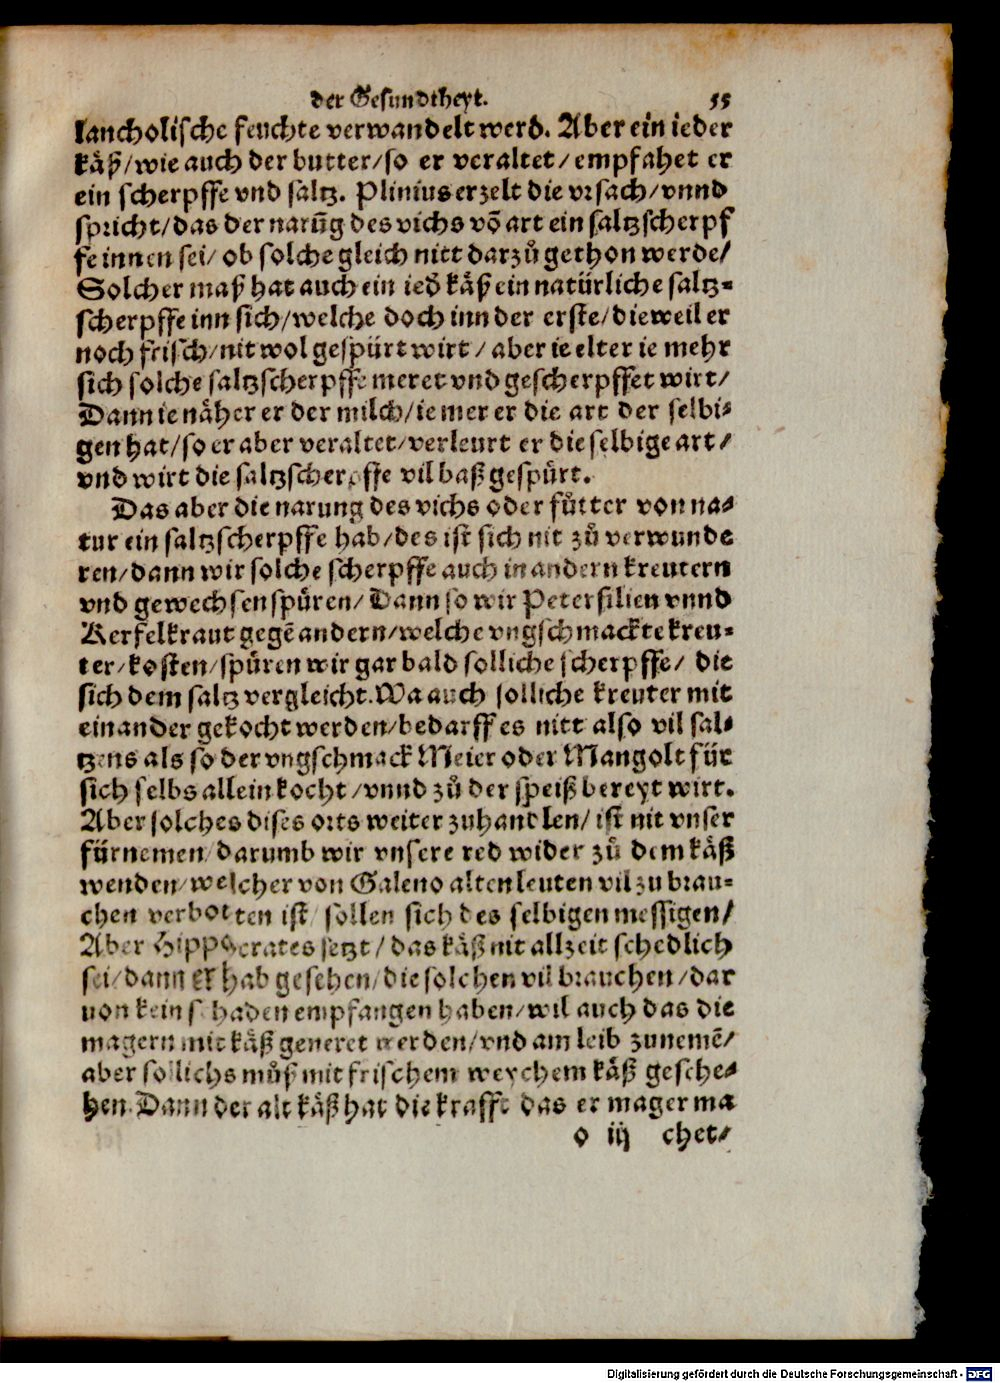 der Gesundtheyt. 55
lancholische feuchte verwandelt werd. Aber ein ieder
käß/wie auch der butter/so er veraltet/empfahet er
ein scherpffe vnd saltz. Plinius erzelt die vrsach/vnnd
spricht/das der narūg des vichs vō art ein saltzscherpf
fe innen sei/ob solche gleich nitt darzů gethon werde/
Solcher maß hat auch ein ied̄ käß ein natürliche saltz-
scherpffe inn sich/welche doch inn der erste/dieweil er
noch frisch/nit wol gespürt wirt/aber ie elter ie mehr
sich solche saltzscherpffe meret vnd gescherpffet wirt/
Dann ie näher er der milch/ie mer er die art der selbi-
gen hat/so er aber veraltet/verleurt er die selbige art/
vnd wirt die saltzscherpffe vil baß gespürt.
Das aber die narung des vichs oder fůtter von na-
tur ein saltzscherpffe hab/des ist sich nit zů verwunde
ren/dann wir solche scherpffe auch in andern kreutern
vnd gewechsen spüren/Dann so wir Petersilien vnnd
Kerfelkraut gegē andern/welche vngschmackte kreu-
ter/kosten/spüren wir gar bald solliche scherpffe/die
sich dem saltz vergleicht. Wa auch solliche kreuter mit
einander gekocht werden/bedarff es nitt also vil sal-
tzens als so der vngschmack Meier oder Mangolt für
sich selbs allein kocht/vnnd zů der speiß bereyt wirt.
Aber solches dises orts weiter zuhandlen/ist nit vnser
fürnemen/darumb wir vnsere red wider zů dem käß
wenden/welcher von Galeno alten leuten vil zu brau-
chen verbotten ist/sollen sich des selbigen messigen/
Aber Hippocrates setzt/das käß nit allzeit schedlich
sei/dann er hab gesehen/die solchen vil brauchen/dar
uon kein schaden empfangen haben/wil auch das die
magern mit käß generet werden/vnd am leib zunemē/
aber sollichs můß mit frischem weychem käß gesche-
hen. Dann der alt käß hat die krafft das er mager ma
o iij chet/
Digitalisierung gefördert durch die Deutsche Forschungsgemeinschaft - DFG